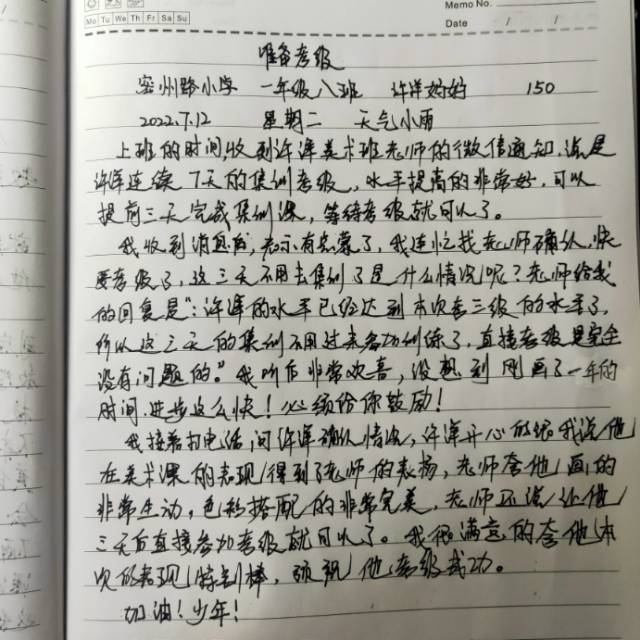 Memo No.
Mo Tu We Th Fr Sa Su
Date / /
准备考级
密州路小学 一年级八班 许洋妈妈 150
2022.7.12 星期二 天气小雨
上班的时间,收到许洋美术班老师的微信通知,说是
许洋连续7天的集训考级,水平提高的非常好,可以
提前三天完成集训课,等待考级就可以了。
我收到消息后,表示有些蒙了,我连忙找老师确认,快
要考级了,这三天不用去集训了是什么情况呢?老师给我
的回复是":许洋的水平已经达到本次考三级的水平了,
所以这三天的集训不用过来参加训练了,直接考级是完全
没有问题的。"我听后非常欢喜,没想到刚画了一年的
时间,进步这么快!必须给你鼓励!
我接着打电话,问许洋确认情况,许洋开心的给我说他
在美术课的表现得到了老师的表扬,老师夸他画的
非常生动,色彩搭配的非常完美,老师还说让他
三天后直接参加考级就可以了。我很满意的夸他本
次的表现特别棒,预祝他考级成功。
加油!少年!